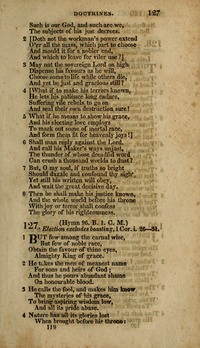 DOCTRINES. 127
Such is our God, and such are we,
The subjects of his just decrees.
2 [Doth not the workman's power extend
O'er all the mass, which part to choose
And mould it for a nobler end,
And which to leave for viler use?]
3 May not the sovereign Lord on high
Dispense his favours as he will,
Choose some to life while others die,
And yet be just and gracious still?
4 [What if to make his terrors known,
He lets his patience long endure,
Suffering vile rebels to go on
And seal their own destruction sure!
5 What if he means to show his grace,
And his electing love employs
To mark out some of mortal race,
And form them fit for heavenly joys!]
6 Shall man reply against the Lord,
And call his Maker's ways unjust,
The thunder of whose dreadful word
Can crush a thousand worlds to dust?
7 But, O my soul, if truths so bright
Should dazzle and confound thy sight,
Yet still his written will obey,
And wait the great decisive day.
8 Then he shall make his justice known,
And the whole world before his throne
With joy or terror shall confess
The glory of his righteousness.
127. (Hymn 96. B. 1. C. M.)
Election excludes boasting, 1 Cor. i. 26—31.
1 BUT few among the carnal wise,
But few of noble race,
Obtain the favour of thine eyes,
Almighty King of grace.
2 He takes the men of meanest name
For sons and heirs of God;
And thus he pours abundant shame
On honourable blood.
3 He calls the fool, and makes him know
The mysteries of his grace,
To bring aspiring wisdom low,
And all its pride abase.
4 Nature has all its glories lost
When brought before his throne:
119